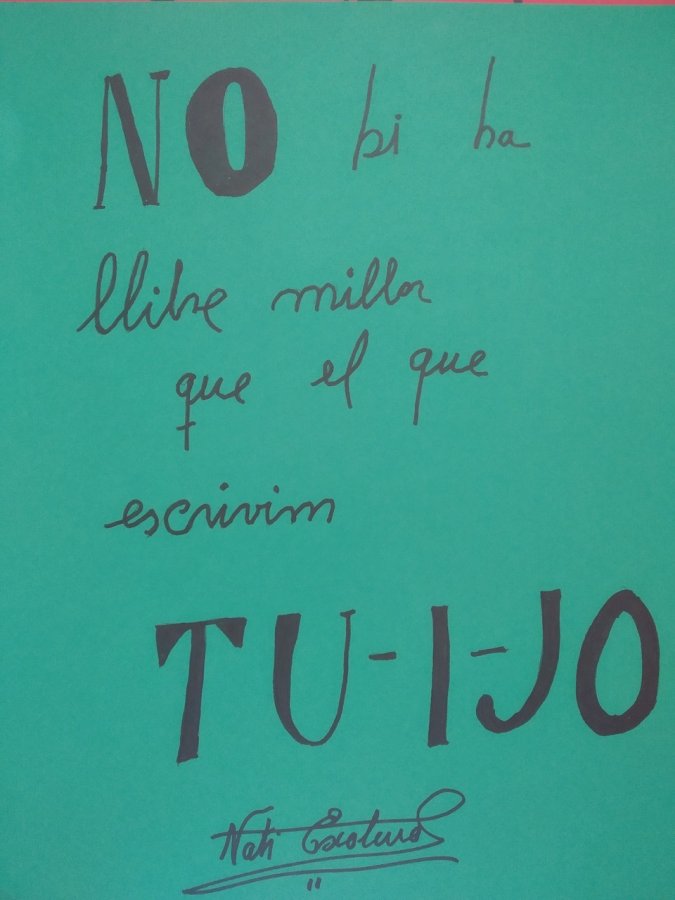 NO hi ha
llibre millor
que el que
escrivim
TU-I-JO
Nati